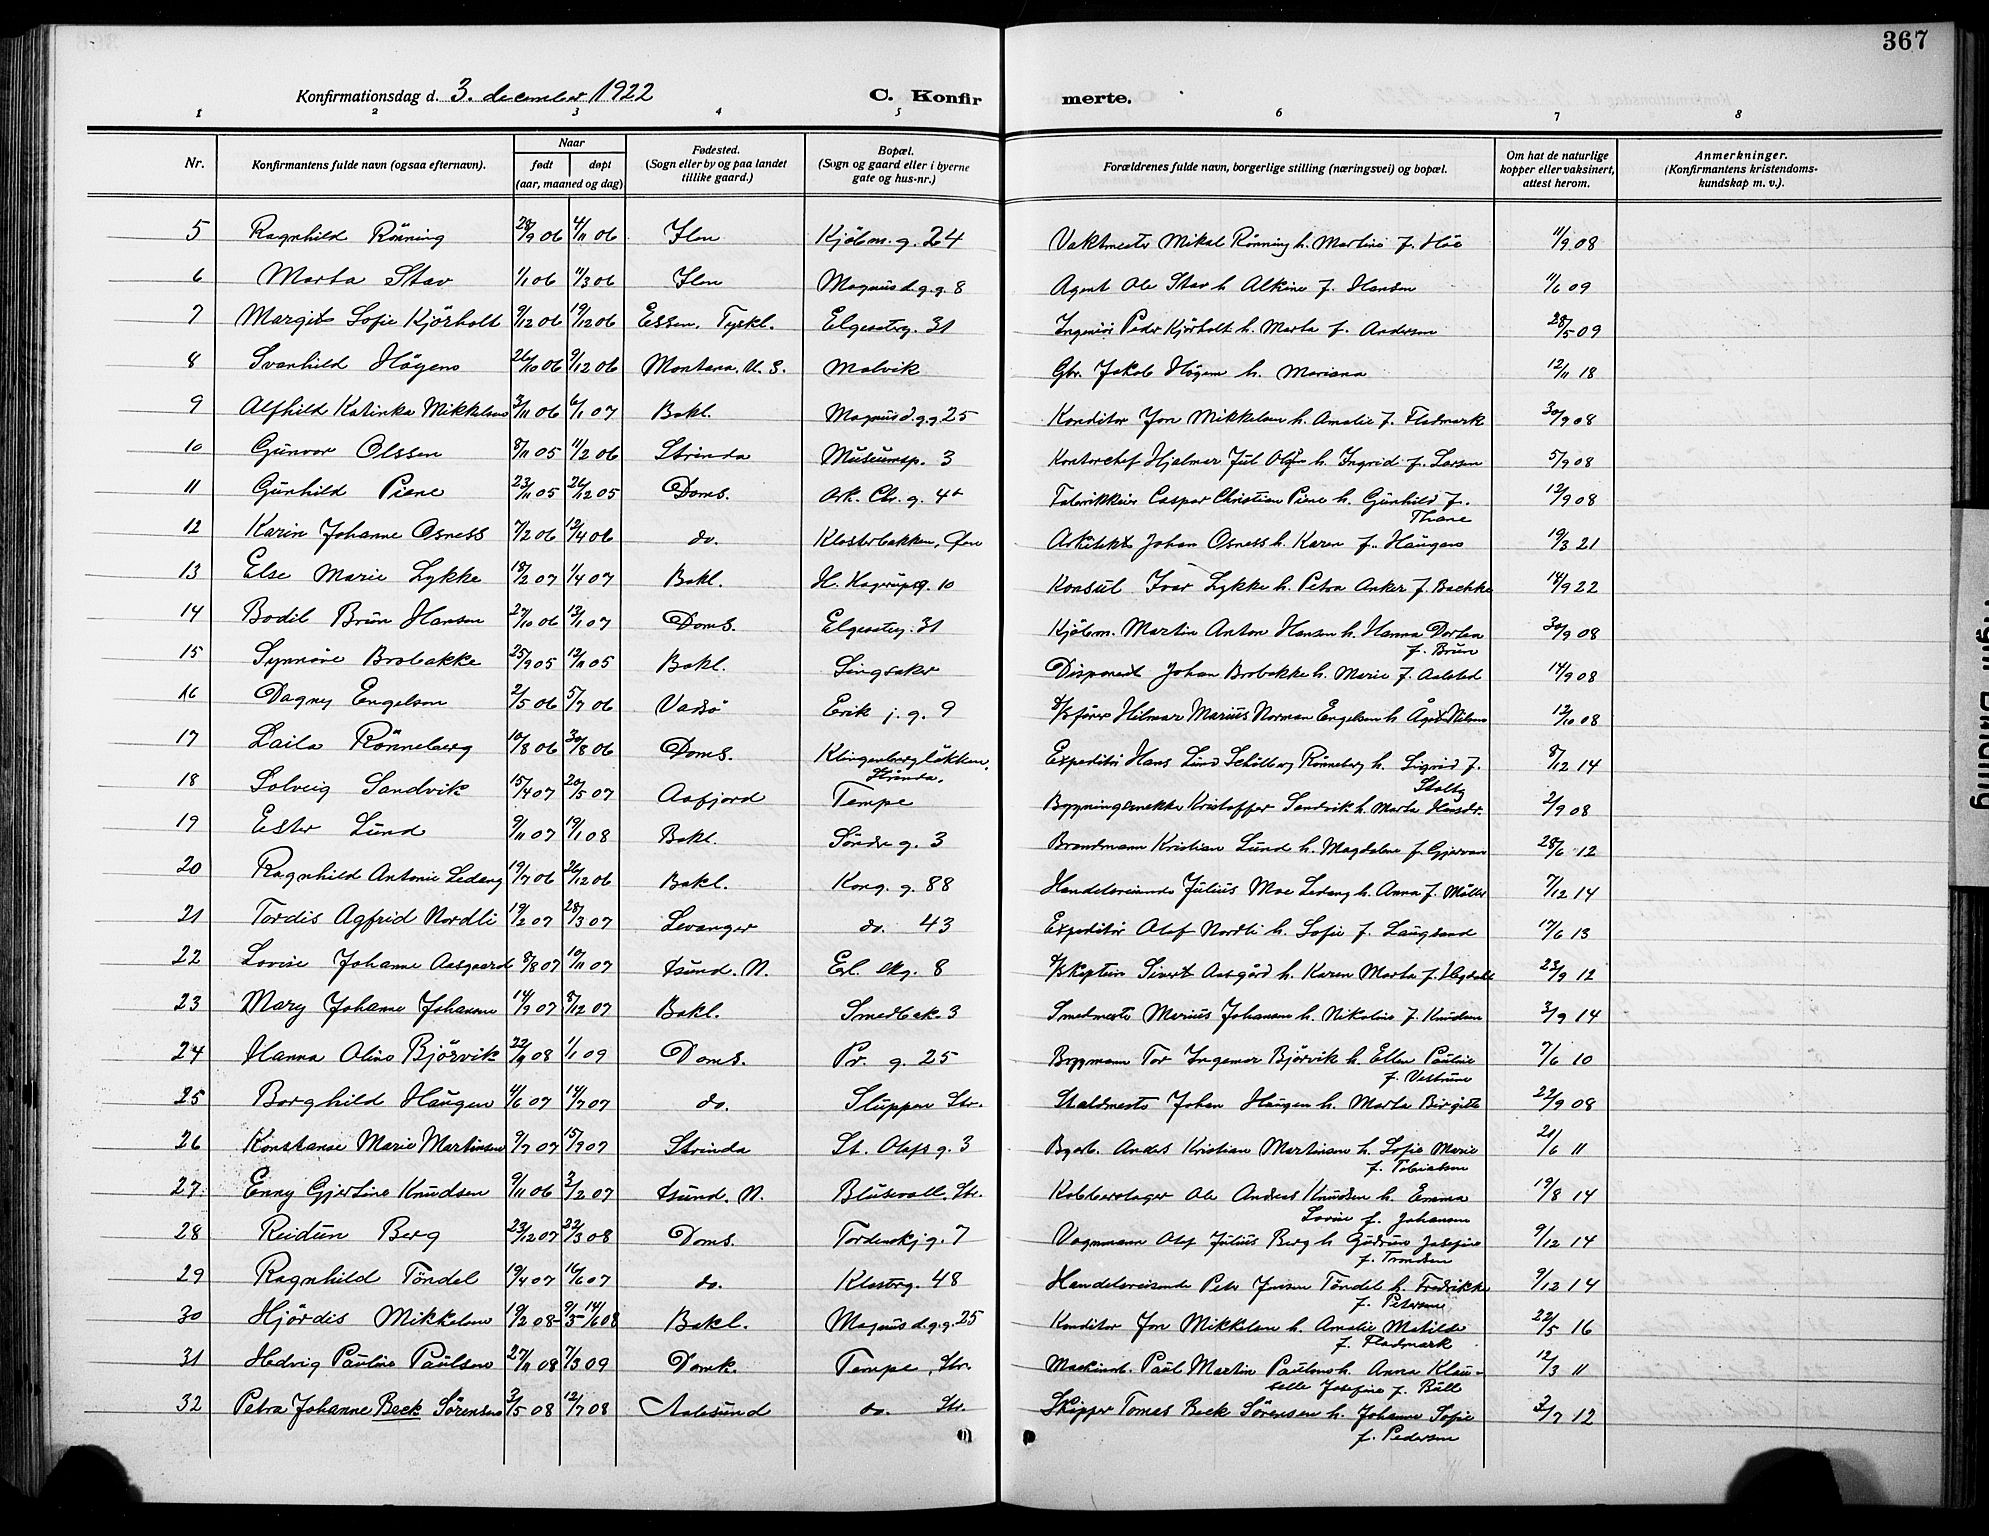 367
Konfirmationsdag d. 3. december 1922 C. Konfirmerte.
1 2 3 4 5 6 7 8
Nr. Konfirmantens fulde navn (ogsaa efternavn). Naar født døpt (aar, maaned og dag) Fødested. (Sogn eller by og paa landet tillike gaard.) Bopæl. (Sogn og gaard eller i byerne gate og hus-nr.) Forældrenes fulde navn, borgerlige stilling (næringsvei) og bopæl. Om hat de naturlige kopper eller vaksinert, attest herom. Anmerkninger. (Konfirmantens kristendoms-kundskap m. v.).
5 Ragnhild Rönning 28/9 06 4/11 06 Ilen Kjöbm. g. 24 Vaktmester Mikal Rönning h. Martine f. Höe 11/9 08
6 Marta Stav 1/1 06 11/3 06 Ilen Magnus d. g. g. 8 Agent Ole Stav h. Alkine f. Hansen 11/6 09
7 Margit Sofie Kjörholt 9/12 06 19/12 06 Essen. Tyskl. Elgesetrg. 31 Ingeniör Peder Kjörholt h. Marta f. Andersen 28/5 09
8 Svanhild Högems 26/10 06 9/12 06 Montana. U. S. Malvik Gbr. Jakob Högem h. Mariana 12/11 18
9 Alfhild Katinka Mikkelsen 3/11 06 6/1 07 Bakl. Magnus d. g. g. 25 Konditor Jon Mikkelsen h. Amalie f. Fladmark 30/9 08
10 Gunvor Olssen 8/11 05 11/2 06 Strinda Museumsp. 3 Kontorchef Hjalmar Jul Olssen h. Ingrid f. Larsen 5/9 08
11 Gunhild Piene 23/11 05 26/12 05 Doms. Ark. Chr. g. 4b Fabrikkeier Caspar Christian Piene h. Gunhild f. Thane 12/9 08
12 Karin Johanne Osness 7/2 06 12/4 06 do. Klosterbakken, Öen Arkitekt Johan Osness h. Karen f. Haugens 19/3 21
13 Else Marie Lykke 18/2 07 1/4 07 Bakl. H. Hagerupsg. 10 Konsul Ivar Lykke h. Petra Anker f. Bachke 14/9 22
14 Bodil Brun Hansen 27/10 06 13/1 07 Doms. Elgesetrg. 31 Kjöbm. Martin Anton Hansen h. Hanna Dortea f. Brun 30/9 08
15 Synnöve Brobakke 25/9 05 12/11 05 Bakl. Singsaker Disponent Johan Brobakke h. Marie f. Aalstad 14/9 08
16 Dagney Engelsen 2/5 06 5/7 06 Vadsö Erik j. g. 9 Hilmar Marius Norman Engelsen h. 12/10 08
17 Laila Rönneberg 10/8 06 30/8 06 Doms. Klingenberglökken, Strinda. Expeditör Hans Lund Schölberg Rönneberg h. Sigrid f. Stoltz 8/12 14
18 Solveig Sandvik 15/4 07 20/5 07 Aafjord Tempe Bygningssnekker Kristoffer Sandvik h. Marta Hansdr. 2/9 08
19 Ester Lund 9/11 07 19/1 08 Bakl. Söndre g. 3 Brandmann Kristian Lund h. Magdalene f. Gjervan 28/6 12
20 Ragnhild Antonie Ledang 19/7 06 26/12 06 Bakl. Kong. g. 88 Handelsreisende Julius Moe Ledang h. Anna f. Möller 7/12 14
21 Tordis Agfrid Nordli 19/2 07 28/3 07 Levanger do. 43 Expeditör Olaf Nordli h. Sofie f. Laugsand 17/6 13
22 Lovise Johanne Aasgaard 8/8 07 10/11 07 Ksund. N. Erl. skg. 8 Sivert Aasgård h. Karen Marta f. Hegdahl 23/9 12
23 Mary Johanne Johansen 14/9 07 8/12 07 Bakl. Smedbak. 3 Smedmester Marius Johansen h. Nikoline f. Knudsen 3/9 14
24 Hanna Oline Björvik 22/11 08 1/1 09 Doms. Pr. g. 25 Byggmann Tor Ingemar Björvik h. Ellen Pauline f. Vestrune 7/6 10
25 Borghild Haugen 4/6 07 14/7 07 do. Sluppen Str. Staldmester Johan Haugen h. Marta Birgitte 22/9 08
26 Konstanse Marie Martinsen 9/7 07 15/9 07 Strinda St. Olafs g. 3 Byarb. Anders Kristian Martinsen h. Sofie Marie f. Tobiassen 21/6 11
27 Enny Gjertine Knudsen 9/11 06 3/2 07 Ksund. N. Blusvoll. Str. Ole Andreas Knudsen h. Emma Lovise f. Johansen 19/8 14
28 Reidun Berg 23/12 07 22/3 08 Doms. Tordenskj. g. 7 Vognmann Olaf Julius Berg h. Gudrun Josefine f. Trondsen 9/12 14
29 Ragnhild Töndel 19/4 07 16/6 07 do. Klostrg. 48 Handelsreisende Peter Jensen Töndel h. Fredrikke f. Petersen 9/12 14
30 Hjördis Mikkelsen 19/2 08 9/5-14/6 08 Bakl. Magnus d. g. g. 25 Konditor Jon Mikkelsen h. Amalie Matilde f. Fladmark 22/5 16
31 Hedvig Pauline Paulsen 27/11 08 7/3 09 Domk. Tempe, Str. Maskinarb. Paul Martin Paulsen h. Anna Klausselle Josefine f. Bull 12/3 11
32 Petra Johanne Beck Sörensen 3/5 08 12/7 08 Aalesund do. Str. Skipper Tomas Beck Sörensen h. Johanne Sofie f. Pedersen 3/7 12